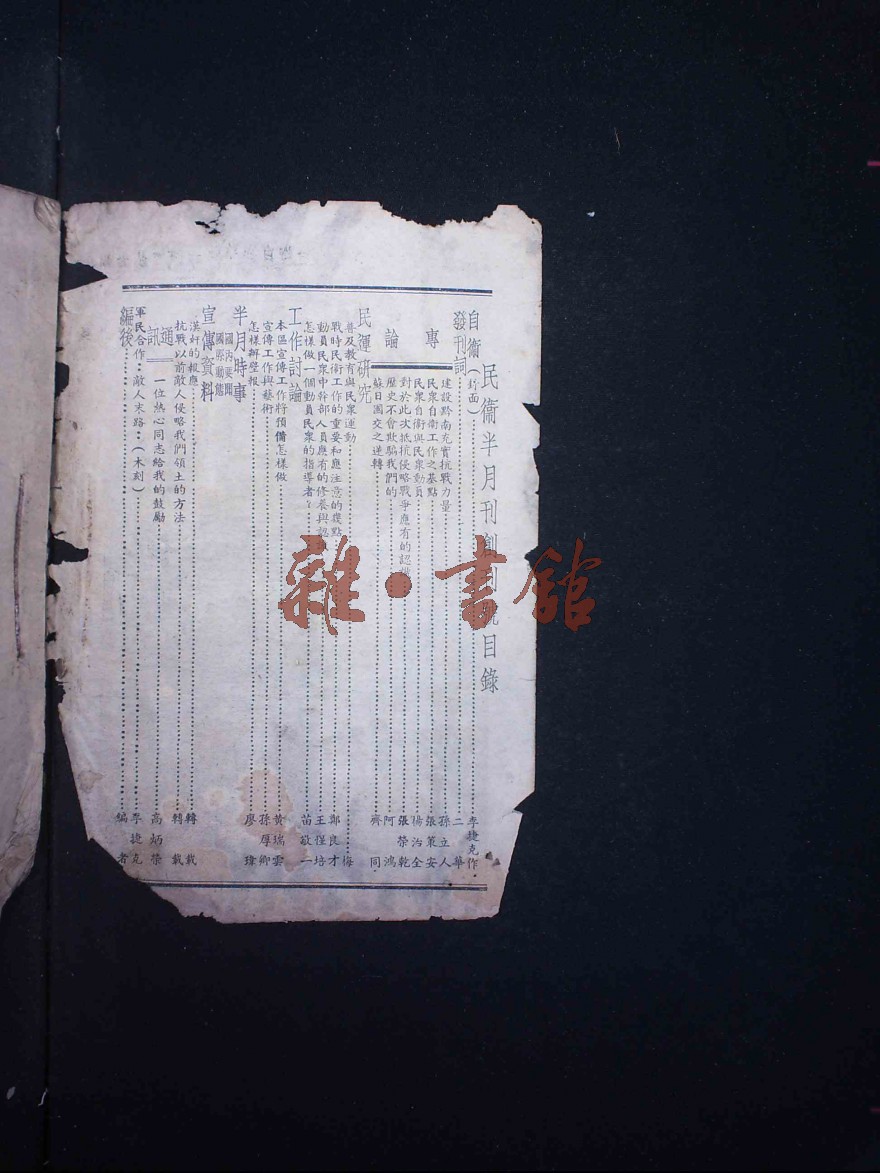 民衞半月刊創刊號目錄
自衞(封面)……李捷克作
發刊詞……二華
專論
建設黔南充實抗戰力量……孫立人
民衆自衞工作之基點……張策安
民衆自衞與民衆動員……楊治全
對於此次抵抗侵略戰爭應有的認識……張榮乾
歷史不會欺騙我們的……阿鴻
蘇日國交之逆轉……齊同
民運研究
普及教育與民衆運動……梅
戰時民衞工作的重要和應注意的幾點……鄭良才
動員民衆中幹部人員應有的修養與認……王僅培
怎樣做一個動員民衆的指導者……苗敬一
工作討論
本區宣傳工作將預備怎樣做……黃瑞雲
宣傳工作與藝術……孫厚卿
怎樣辦壁報……廖瑋
半月時事
國內要聞
國際動態
宣傳資料
漢奸的報應……轉載
抗戰以前敵人侵略我們領土的方法……轉載
通訊
一位熱心同志給我的鼓勵……高炳榮
軍民合作·敵人末路··(木刻)……李捷克
編後……編者
雜·書館